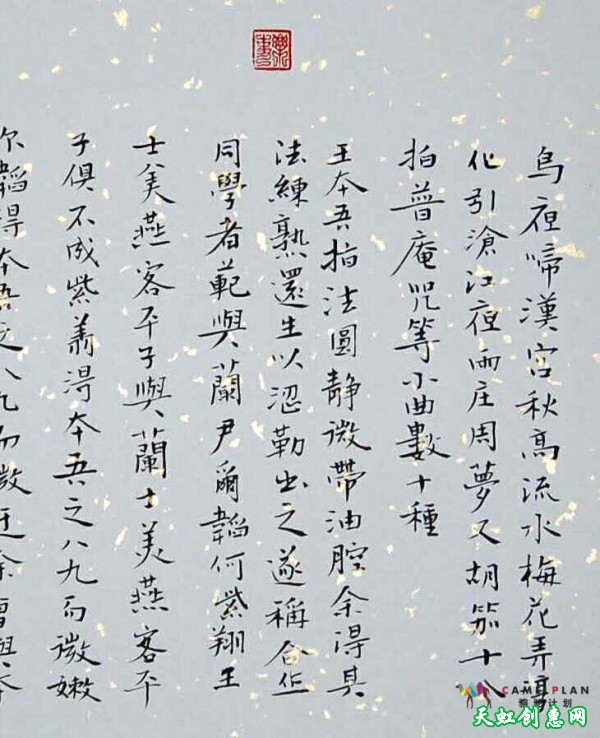 烏夜啼漢宮秋高流水梅花弄淳
化引滄江夜雨庄周夢又胡笳十八
拍普庵咒等小曲數十種
王本吾指法圓静微帶油腔余得其
法練熟還生以澀勒出之遂稱合作
同學者範與蘭尹爾韜何紫翔王
士美燕客平子與蘭士美燕客平
子俱不成紫翔得本吾之八九而微嫩
尔韜得本吾之八九而微迂余曾與本
CAMEL PLAN
天虹创惠网